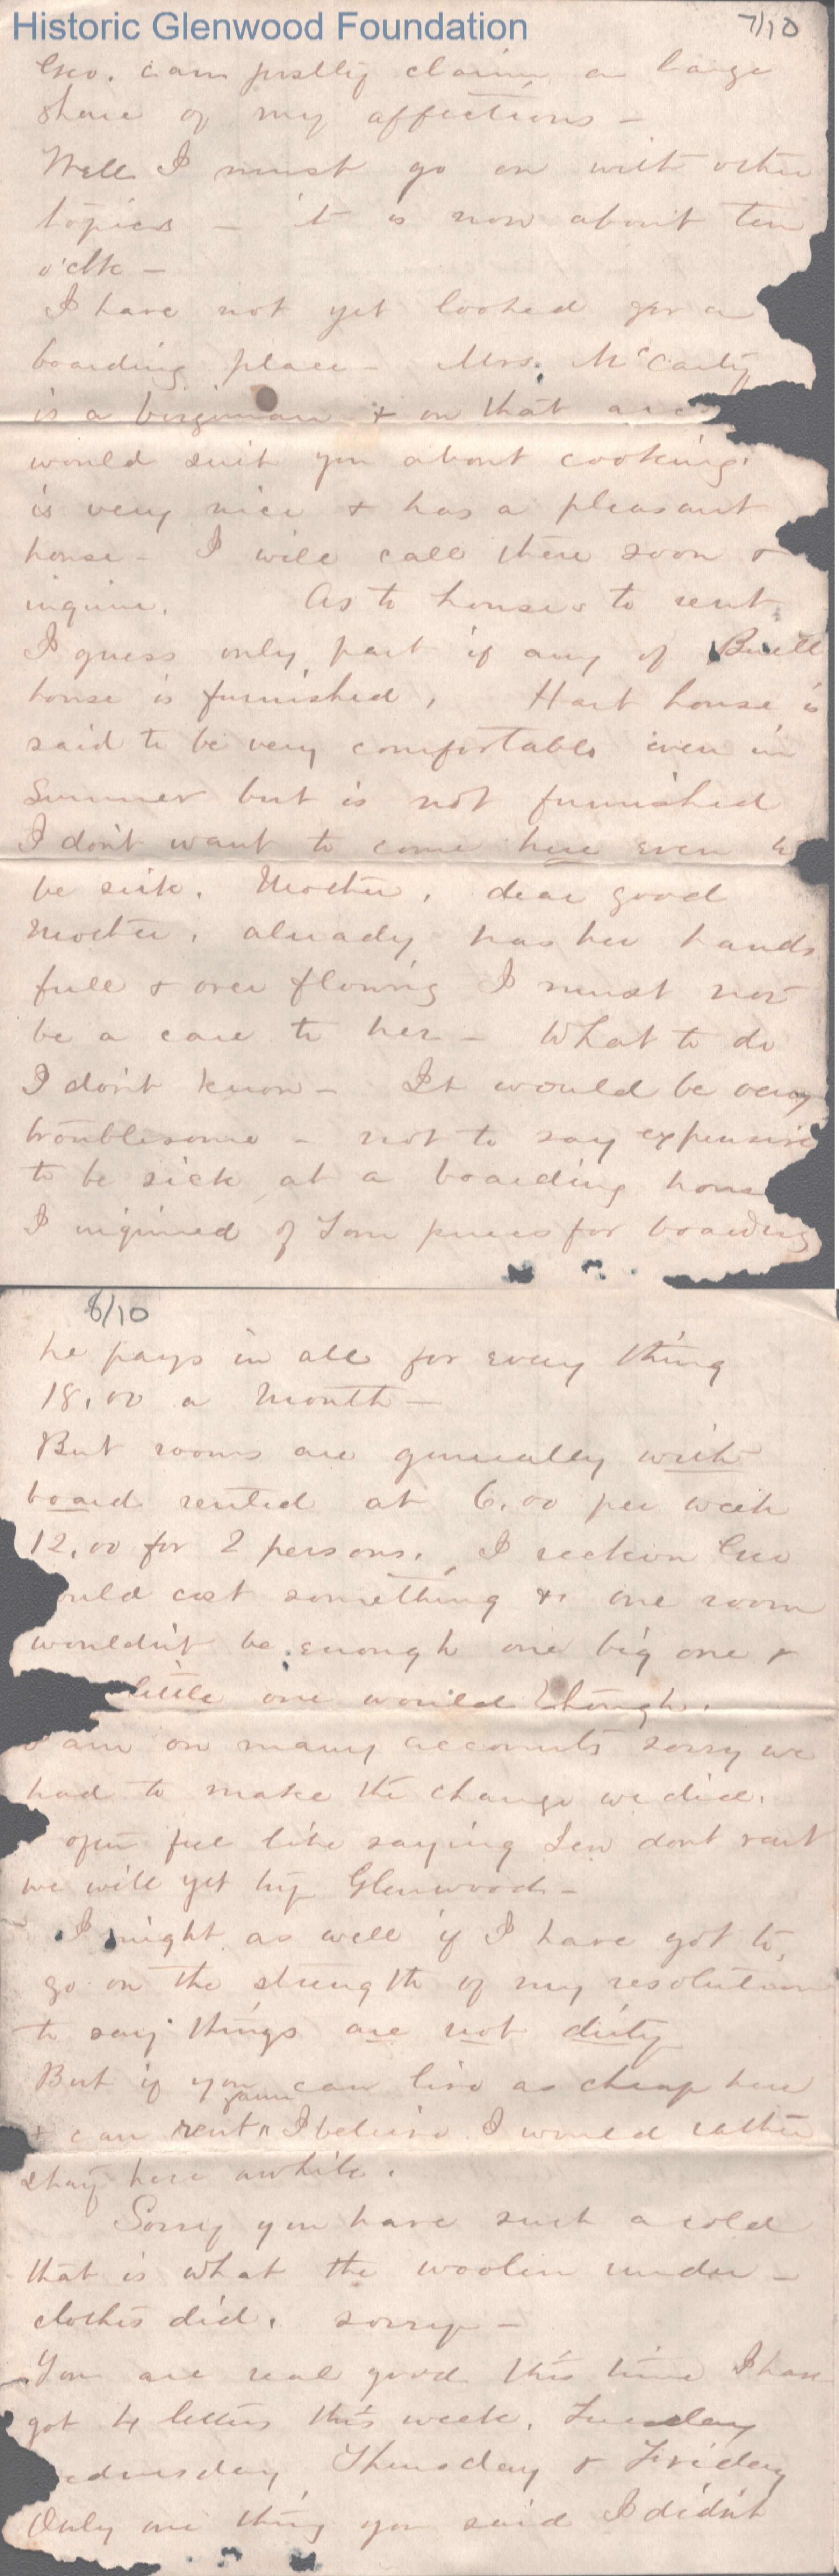 Historic Glenwood Foundation
7/10
Geo. can justly claim a large
share of my affections -
Well I must go on with other
topics - it is now about ten
o'clk -
I have not yet looked for a
boarding place - Mrs. McCarty
is a & on that
would suit you about cooking.
is very nice & has a pleasant
house - I will call there soon &
inquire. As to houses to rent
I guess only part if any of Buell
house is furnished, Hart house is
said to be very comfortable even in
Summer but is not furnished
I don't want to come here even to
be sick. Mother, dear good
Mother, already has her hands
full & over flowing I must not
be a care to her - What to do
I don't know - It would be very
troublesome - not to say expensive
to be sick at a boarding house
I inquired of Tom prices for boarding
8/10
he pays in all for every thing
18.00 a month -
But rooms are generally with
board rented at 6.00 per week
12.00 for 2 persons. I reckon Geo
ould cost something & one room
wouldn't be enough one big one &
little one would though.
I am on many accounts sorry we
had to make the change we did.
often feel like saying Lew dont rent
we will yet try Glenwood -
I might as well if I have got to,
go on the strength of my resolution
to say things are not dirty
But if you can live as cheap here
& can rent farm I believe I would rather
stay here awhile.
Sorry you have such a cold
that is what the woolen under -
clothes did. sorry -
You are real good this time I have
got 4 letters this week. Tuesday
ednesday Thursday & Friday
Only one thing you said I didn't